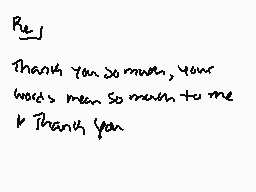 Re
Thank you so much, your
words mean so much to me
Thank you